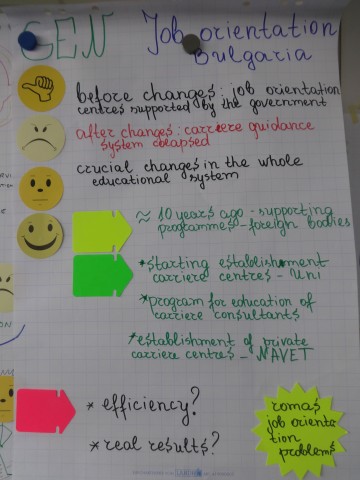 GEN
Job orientation
Bulgaria
before changes: job orientation
centres supported by the government
after changes: carriere guidance
system colapsed
crucial changes in the whole
educational system
≈ 10 years ago - supporting
programmes - foreign bodies
*starting establishment
carriere centres - Uni
*program for education of
carriere consultants
*establishment of private
carriere centres - NAVET
* efficiency?
* real results?
romas
job orienta
tion
problems